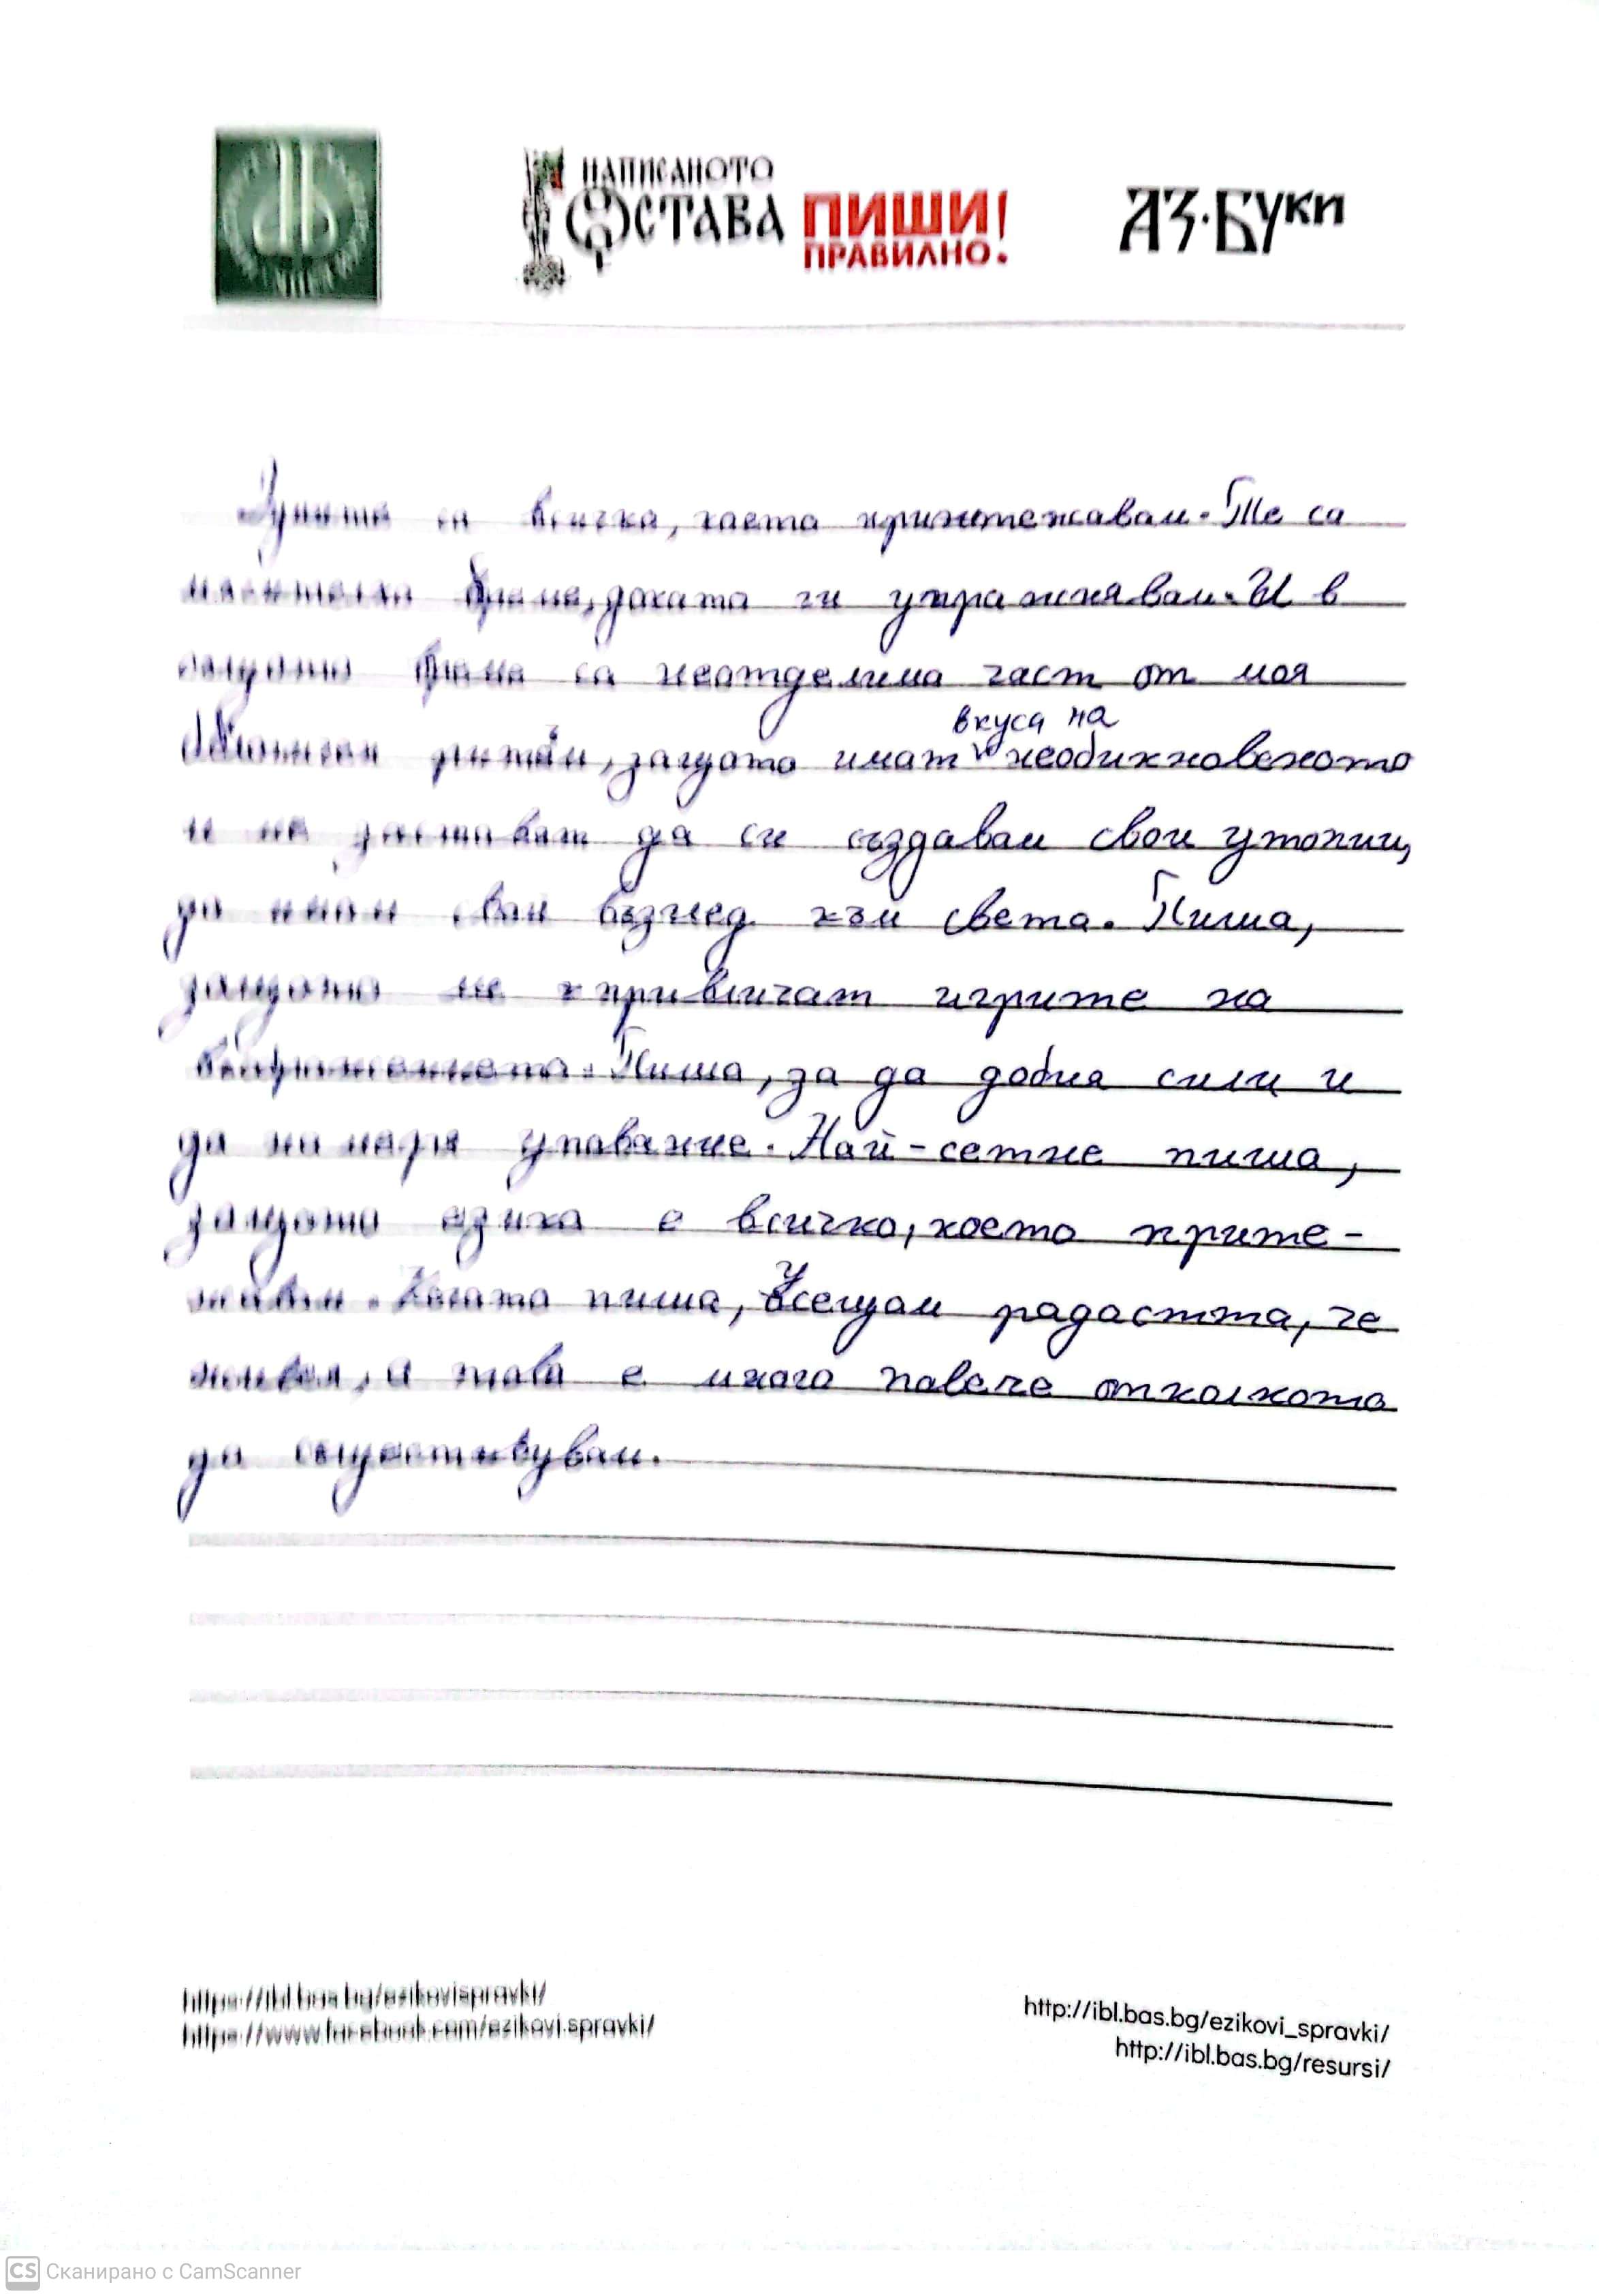 НАПИСАНОТО
ОСТАВА
ПИШИ!
ПРАВИЛНО.
АЗ·БУКИ
Думите са всичко, което притежавам. Те са
мълчаливи време, докато ги упражнявам. И в
същото време са неотделима част от моя
ритъм, защото имат вкуса на необикновеното
и ме заставят да си създавам свои утопии,
да имам свой възглед към света. Пиша,
защото ме привличат игрите на
въображението. Пиша, за да добия сили и
да намеря упование. Най-сетне пиша,
защото езика е всичко, което прите-
жавам. Когато пиша, усещам радостта, че
живея, а това е много повече отколкото
да съществувам.
https://ibl.bas.bg/ezikovispravki/
https://www.facebook.com/ezikovi.spravki/
http://ibl.bas.bg/ezikovi_spravki/
http://ibl.bas.bg/resursi/
CS Сканирано с CamScanner